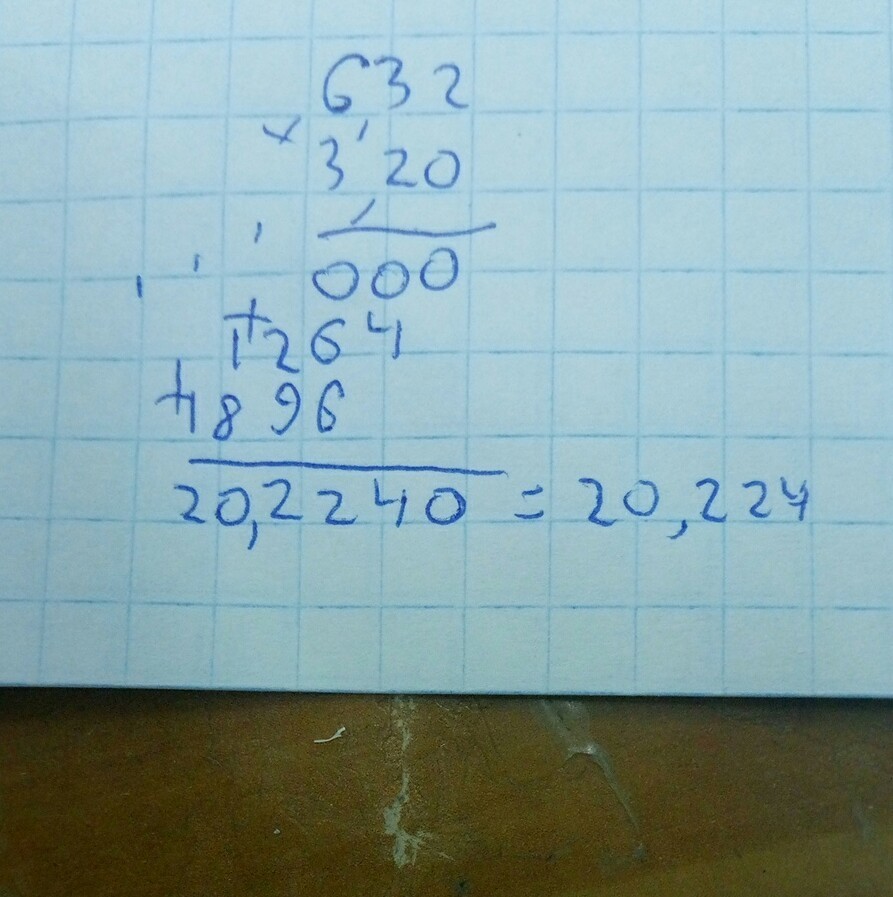 632
× 3,20
000
+ 1264
+ 1896
20,2240 = 20,224